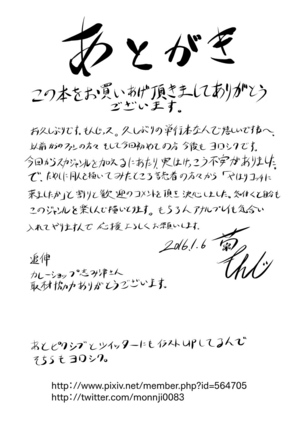 あとがき
この本をお買いあげ頂きましてありがとう
ございます。
お久しぶりです。もんじっス。久しぶりの単行本なんで嬉しいですねへ。
以前からのファンの方々もして今回初めての方 今後もヨロシクです。
今回からスカジャンルを加えるにあたり 実はけっこう不安がありました。
で、ためしに個人で描いてみたところ読者の方々から「やはりコッチに
来ましたか」と割と歓迎のコメントを頂き 決心しました。
このジャンルを楽しんで描いてます。もちろんアナルプレイも気合い
入れてやりますんで 応援よろしくお願いします。
2016.1.6
菊もんじ
追伸
カレーショップ 志み津さん
取材協力ありがとうございます。
あとピクシブとツイッターにもイラストUPしてるんで
そちらもヨロシク。
http://www.pixiv.net/member.php?id=564705
http://twitter.com/monnji0083